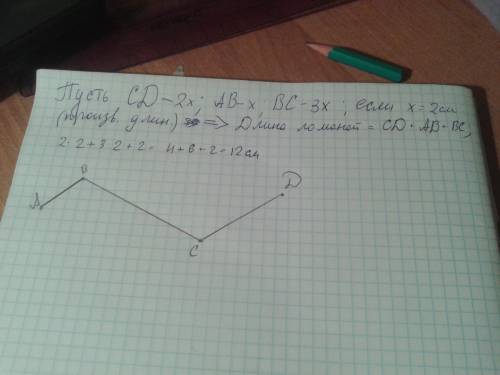 Пусть CD-2x; AB-x, BC-3x; если x=2см
(произв. длин) => Длина ломаной = CD+AB+BC,
2·2+3·2+2= 4+6+2=12см
B
D
A
C